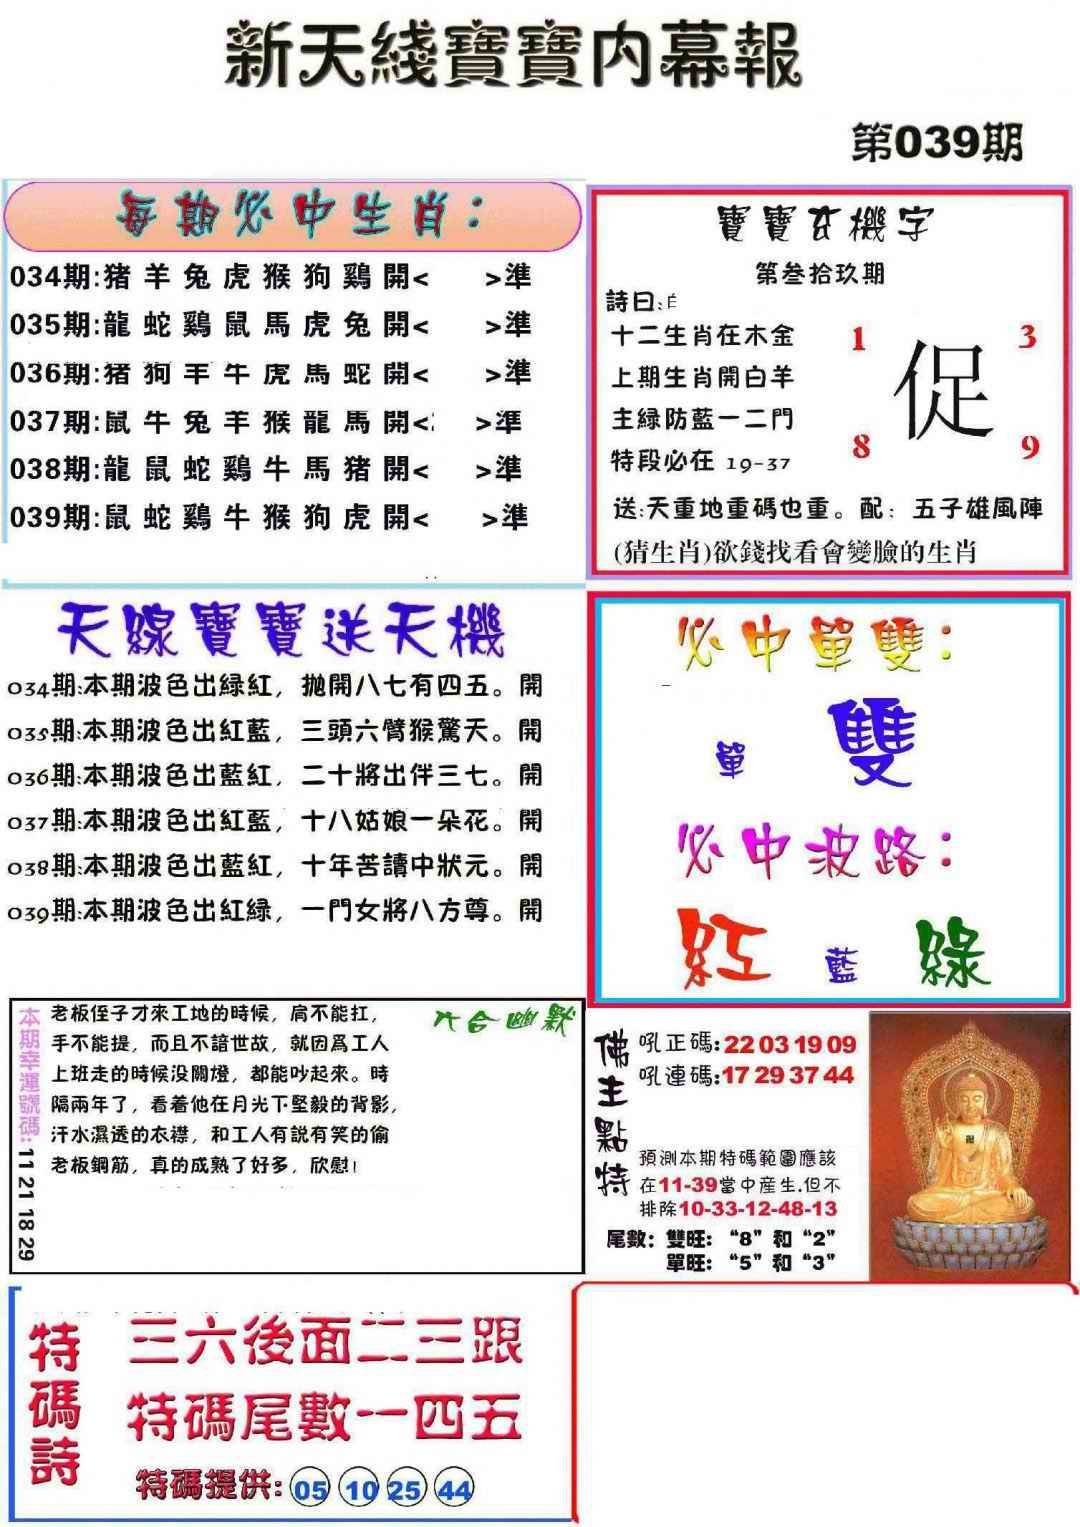 新天綫寶寶内幕報
第039期
每期必中生肖：
034期:猪羊兔虎猴狗鷄開< >準
035期:龍蛇鷄鼠馬虎兔開< >準
036期:猪狗羊牛虎馬蛇開< >準
037期:鼠牛兔羊猴龍馬開< >準
038期:龍鼠蛇鷄牛馬猪開< >準
039期:鼠蛇鷄牛猴狗虎開< >準
寶寶玄機字
第叁拾玖期
詩曰:
十二生肖在木金
上期生肖開白羊
主緑防藍一二門
特段必在 19-37
1 3
促
8 9
送:天重地重碼也重。配：五子雄風陣
(猜生肖)欲錢找看會變臉的生肖
天線寶寶送天機
034期:本期波色出緑紅，抛開八七有四五。開
035期:本期波色出紅藍，三頭六臂猴驚天。開
036期:本期波色出藍紅，二十將出伴三七。開
037期:本期波色出紅藍，十八姑娘一朵花。開
038期:本期波色出藍紅，十年苦讀中狀元。開
039期:本期波色出紅緑，一門女將八方尊。開
必中單雙：
單 雙
必中波路：
紅 藍 綠
本期幸運號碼：11 21 18 29
六合幽默
老板侄子才來工地的時候，肩不能扛，
手不能提，而且不諳世故，就因爲工人
上班走的時候没關燈，都能吵起來。時
隔兩年了，看着他在月光下堅毅的背影，
汗水濕透的衣襟，和工人有説有笑的偷
老板鋼筋，真的成熟了好多，欣慰！
佛主點特
吼正碼:22 03 19 09
吼連碼:17 29 37 44
預測本期特碼範圍應該
在11-39當中産生.但不
排除10-33-12-48-13
尾數：雙旺：“8”和“2”
單旺：“5”和“3”
特碼詩
三六後面二三跟
特碼尾數一四五
特碼提供：05 10 25 44